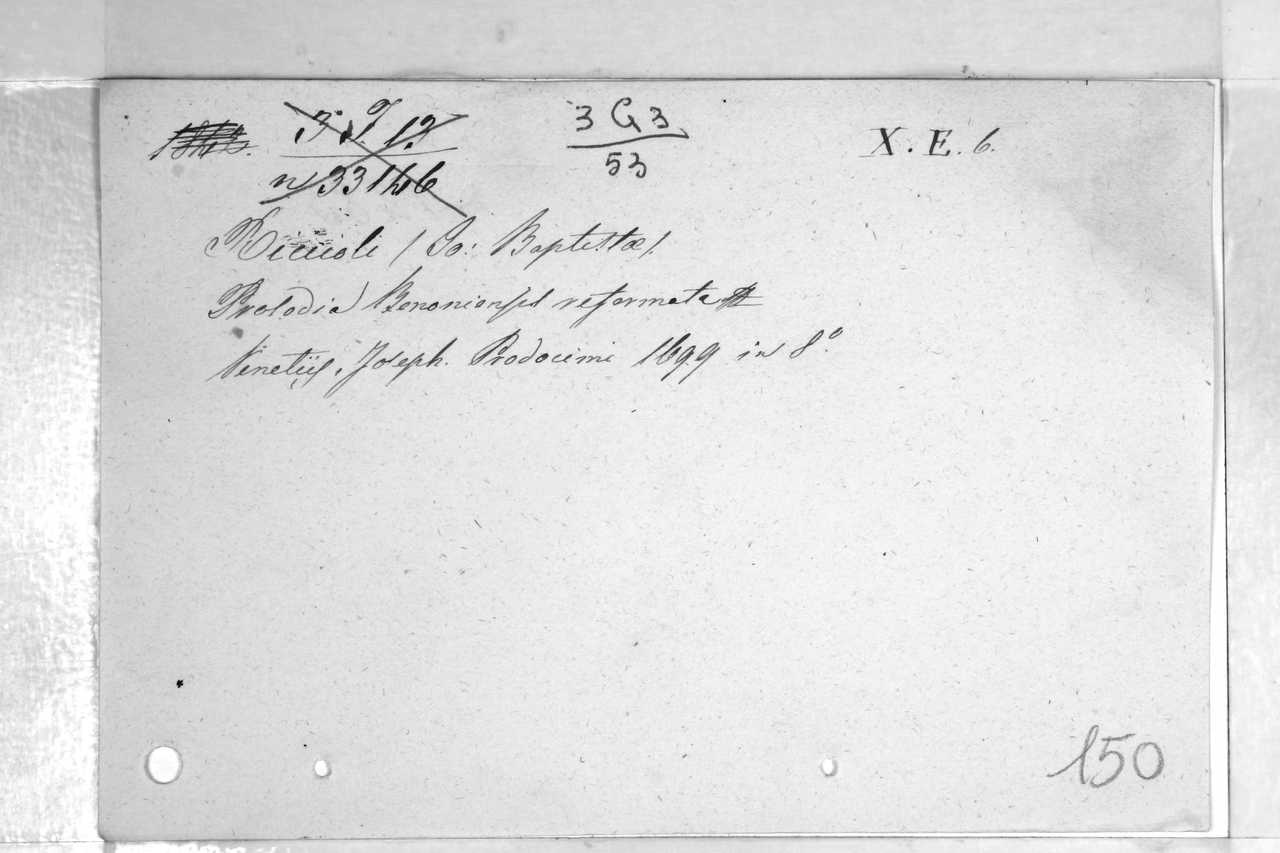 3 G 3
53
X. E. 6.
Riccioli / Jo: Baptistæ /.
Prosodia Bononiensis reformata
Venetiis, Joseph. Prodocimi 1699 in 8.°
150